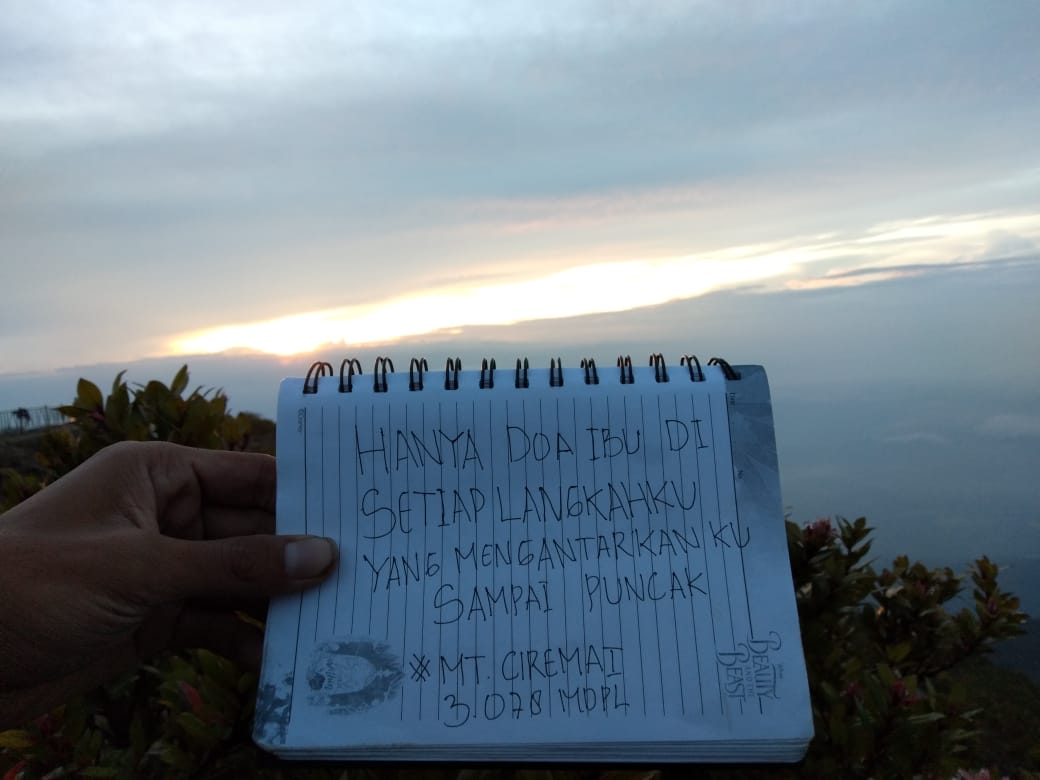 HANYA DOA IBU DI
SETIAP LANGKAHKU
YANG MENGANTARKAN KU
SAMPAI PUNCAK
#MT. CIREMAI
3.078 MDPL
BEAUTY
AND THE
BEAST